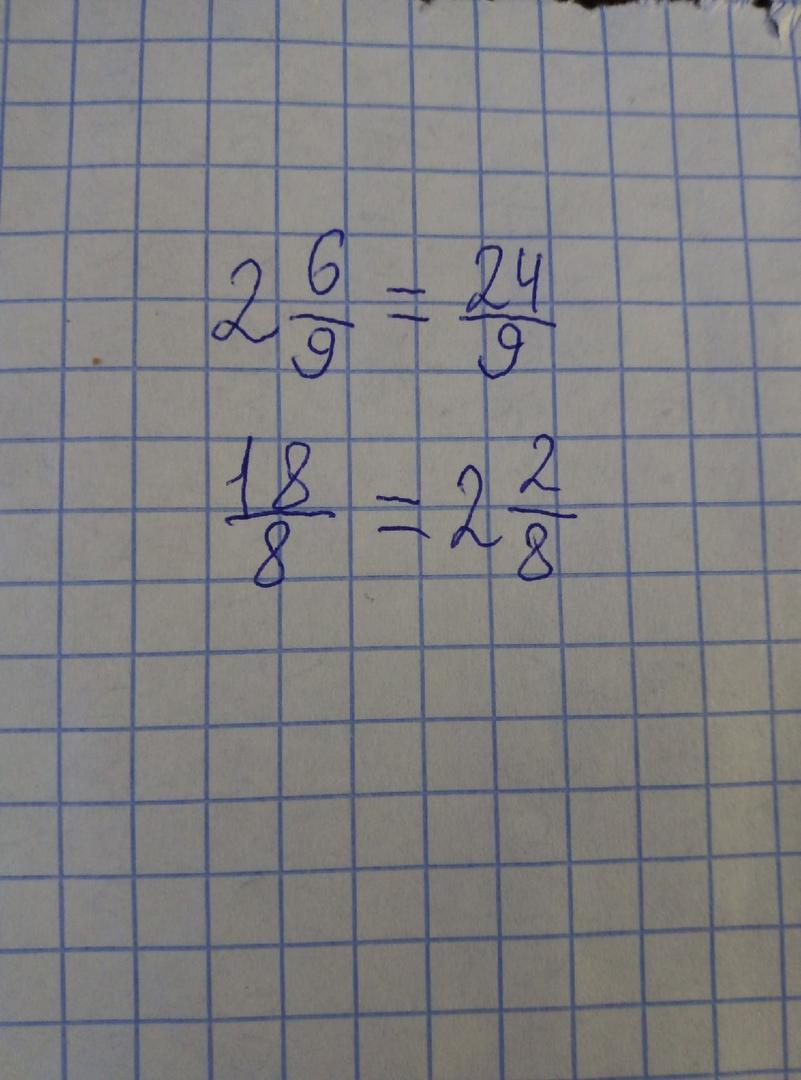 2 6/9 = 24/9
18/8 = 2 2/8